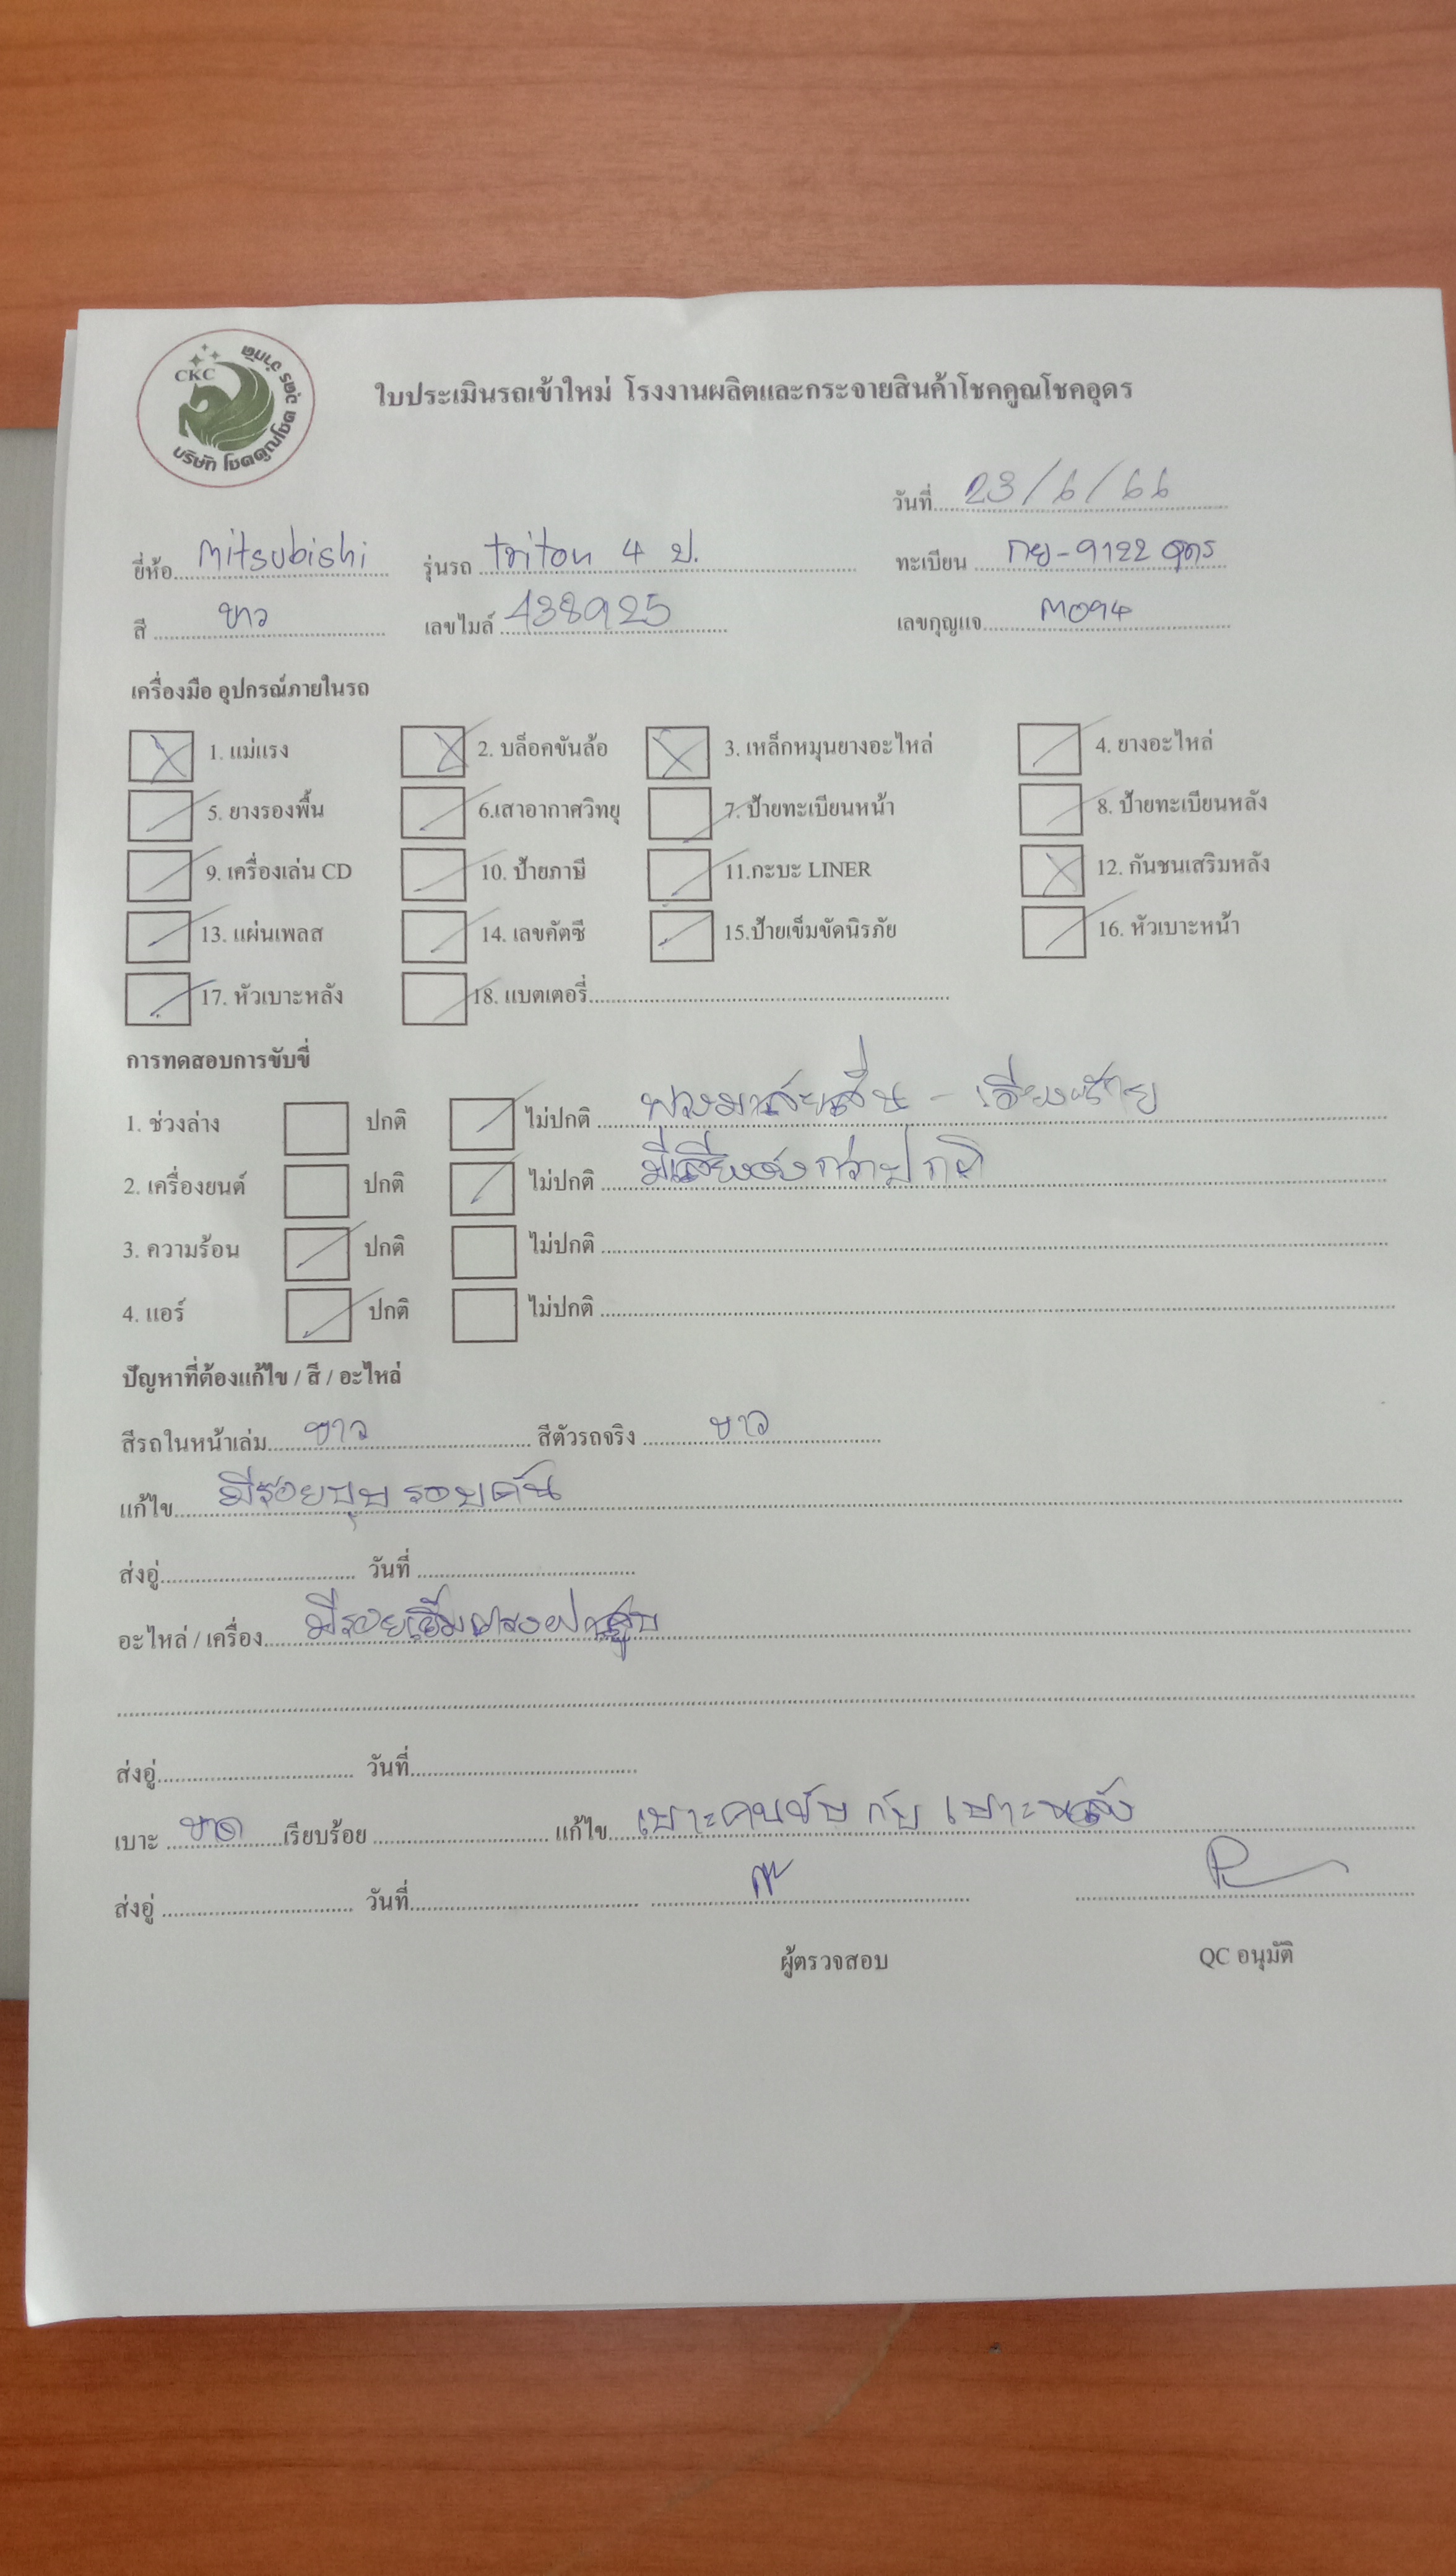 CKC
บริษัท โชคคูณโชค อุดร จำกัด
ใบประเมินรถเข้าใหม่ โรงงานผลิตและกระจายสินค้าโชคคูณโชคอุดร
วันที่ 23/6/66
ยี่ห้อ Mitsubishi รุ่นรถ triton 4 ป. ทะเบียน กย-9122 อุดร
สี ขาว เลขไมล์ 438925 เลขกุญแจ M094
เครื่องมือ อุปกรณ์ภายในรถ
1. แม่แรง 2. บล็อคขันล้อ 3. เหล็กหมุนยางอะไหล่ 4. ยางอะไหล่
5. ยางรองพื้น 6.เสาอากาศวิทยุ 7. ป้ายทะเบียนหน้า 8. ป้ายทะเบียนหลัง
9. เครื่องเล่น CD 10. ป้ายภาษี 11.กะบะ LINER 12. กันชนเสริมหลัง
13. แผ่นเพลส 14. เลขคัตซี 15.ป้ายเข็มขัดนิรภัย 16. หัวเบาะหน้า
17. หัวเบาะหลัง 18. แบตเตอรี่
การทดสอบการขับขี่
1. ช่วงล่าง ปกติ ไม่ปกติ พวงมาลัยสั่น - เอียงซ้าย
2. เครื่องยนต์ ปกติ ไม่ปกติ มีเสียงดังกว่าปกติ
3. ความร้อน ปกติ ไม่ปกติ
4. แอร์ ปกติ ไม่ปกติ
ปัญหาที่ต้องแก้ไข / สี / อะไหล่
สีรถในหน้าเล่ม ขาว สีตัวรถจริง ขาว
แก้ไข มีรอยบุบ รอบคัน
ส่งอู่ วันที่
อะไหล่ / เครื่อง มีรอยเยิ้มตรงฝาสูบ
ส่งอู่ วันที่
เบาะ ขาด เรียบร้อย แก้ไข เบาะคนขับ กับ เบาะหลัง
ส่งอู่ วันที่
ผู้ตรวจสอบ QC อนุมัติ